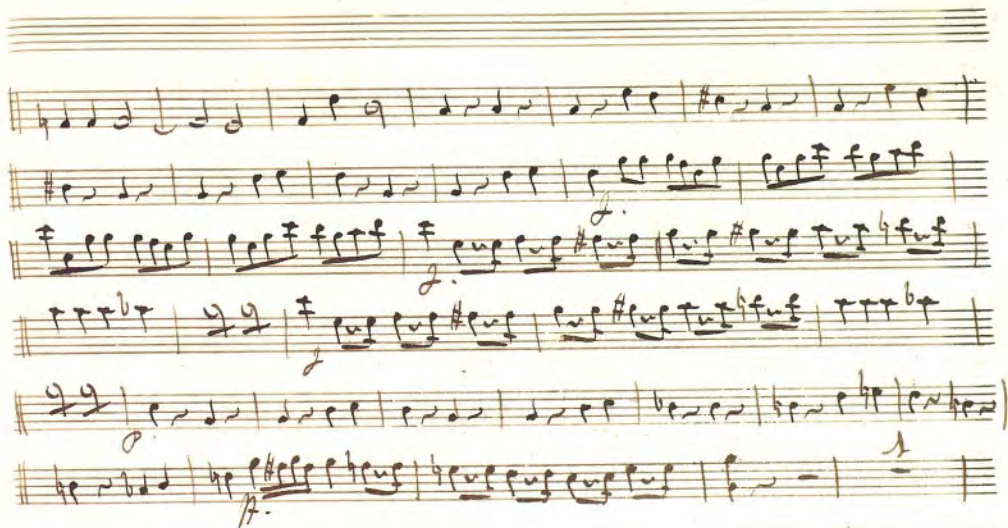 f.
f.
f
p
f.
1